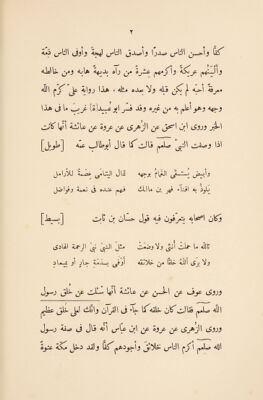 ٢
كفًّا وأحسن الناس صدرًا وأصدق الناس لهجة وأوفى الناس ذمّة
وألينهم عريكة وأكرمهم عشرة من رآه بديهة هابه ومن خالطه
معرفة أحبّه لم يكن قبله ولا بعده مثله، هذا رواية علي كرّم الله
وجهه وهو أعلم به من غيره وقد فسّر ابو عبيد(ة) غريب ما فى هذا
الخبر وروى ابن اسحق عن الزهرى عن عروة عن عائشة أنّها كانت
اذا وصفت النبىّ صلعم قالت كما قال أبوطالب عمّه [طويل]
وأبيض يُستسقى الغمام بوجهه عصمةٌ للأرامل
يلوذ به مالك فهم عنده فى نعمة وفواضل
وكان اصحابه يتعرّفون فيه قول حسّان بن ثابت [بسيط]
تالله ما حملت أنثى ولا وضعت مثل النبىّ نبىّ الرحمة الهادى
ولا برى الله خلقًا من خلائقه أوفى بذمّة جارٍ أو بميعاد
وروى عوف عن الحسن عن عائشة أنّها سُئلت عن خُلق رسول
الله صلعم فقالت كان خلقه كما جآء فى القرآن وانّك لعلى خلق عظيم
وروى الزهرى عن عروة عن ابن عبّاس أنّه قال فى صفة رسول
الله صلعم أكرم الناس خلائق وأجودهم كفًّا ولقد دخل مكّة عنوةً